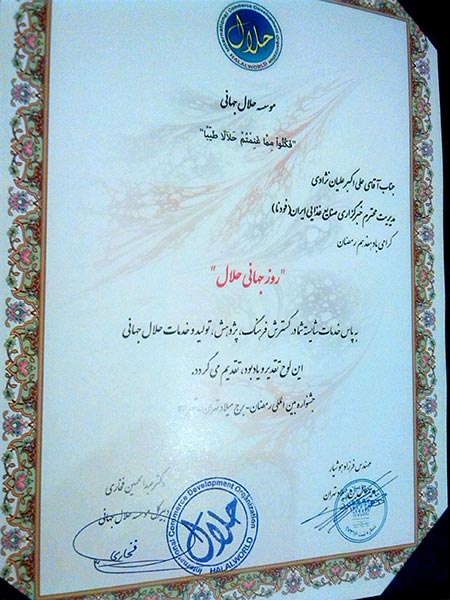 حلال
International Commerce Development Organization
HALALWORLD
موسسه حلال جهانی
"فَكُلُواْ مِمَّا غَنِمْتُمْ حَلاَلاً طَيِّبًا"
جناب آقای علی اکبر علیان نژادی
مدیریت محترم خبرگزاری صنایع غذایی ایران (فودنا)
گرامی باد هفدهم رمضان
"روز جهانی حلال"
به پاس خدمات شایسته شما در گسترش فرهنگ، پژوهش، تولید و خدمات حلال جهانی
این لوح تقدیر و یادبود، تقدیم می گردد.
جشنواره بین المللی رمضان - برج میلاد تهران
مهندس فرزاد هوشیار
دکتر عبدالحسین فخاری
دبیرکل موسسه حلال جهانی
International Commerce Development Organization
حلال
HALALWORLD